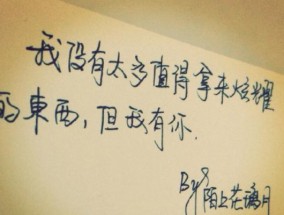 我没有太多值得拿来炫耀
的東西,但我有你.
By 陌上花漓月